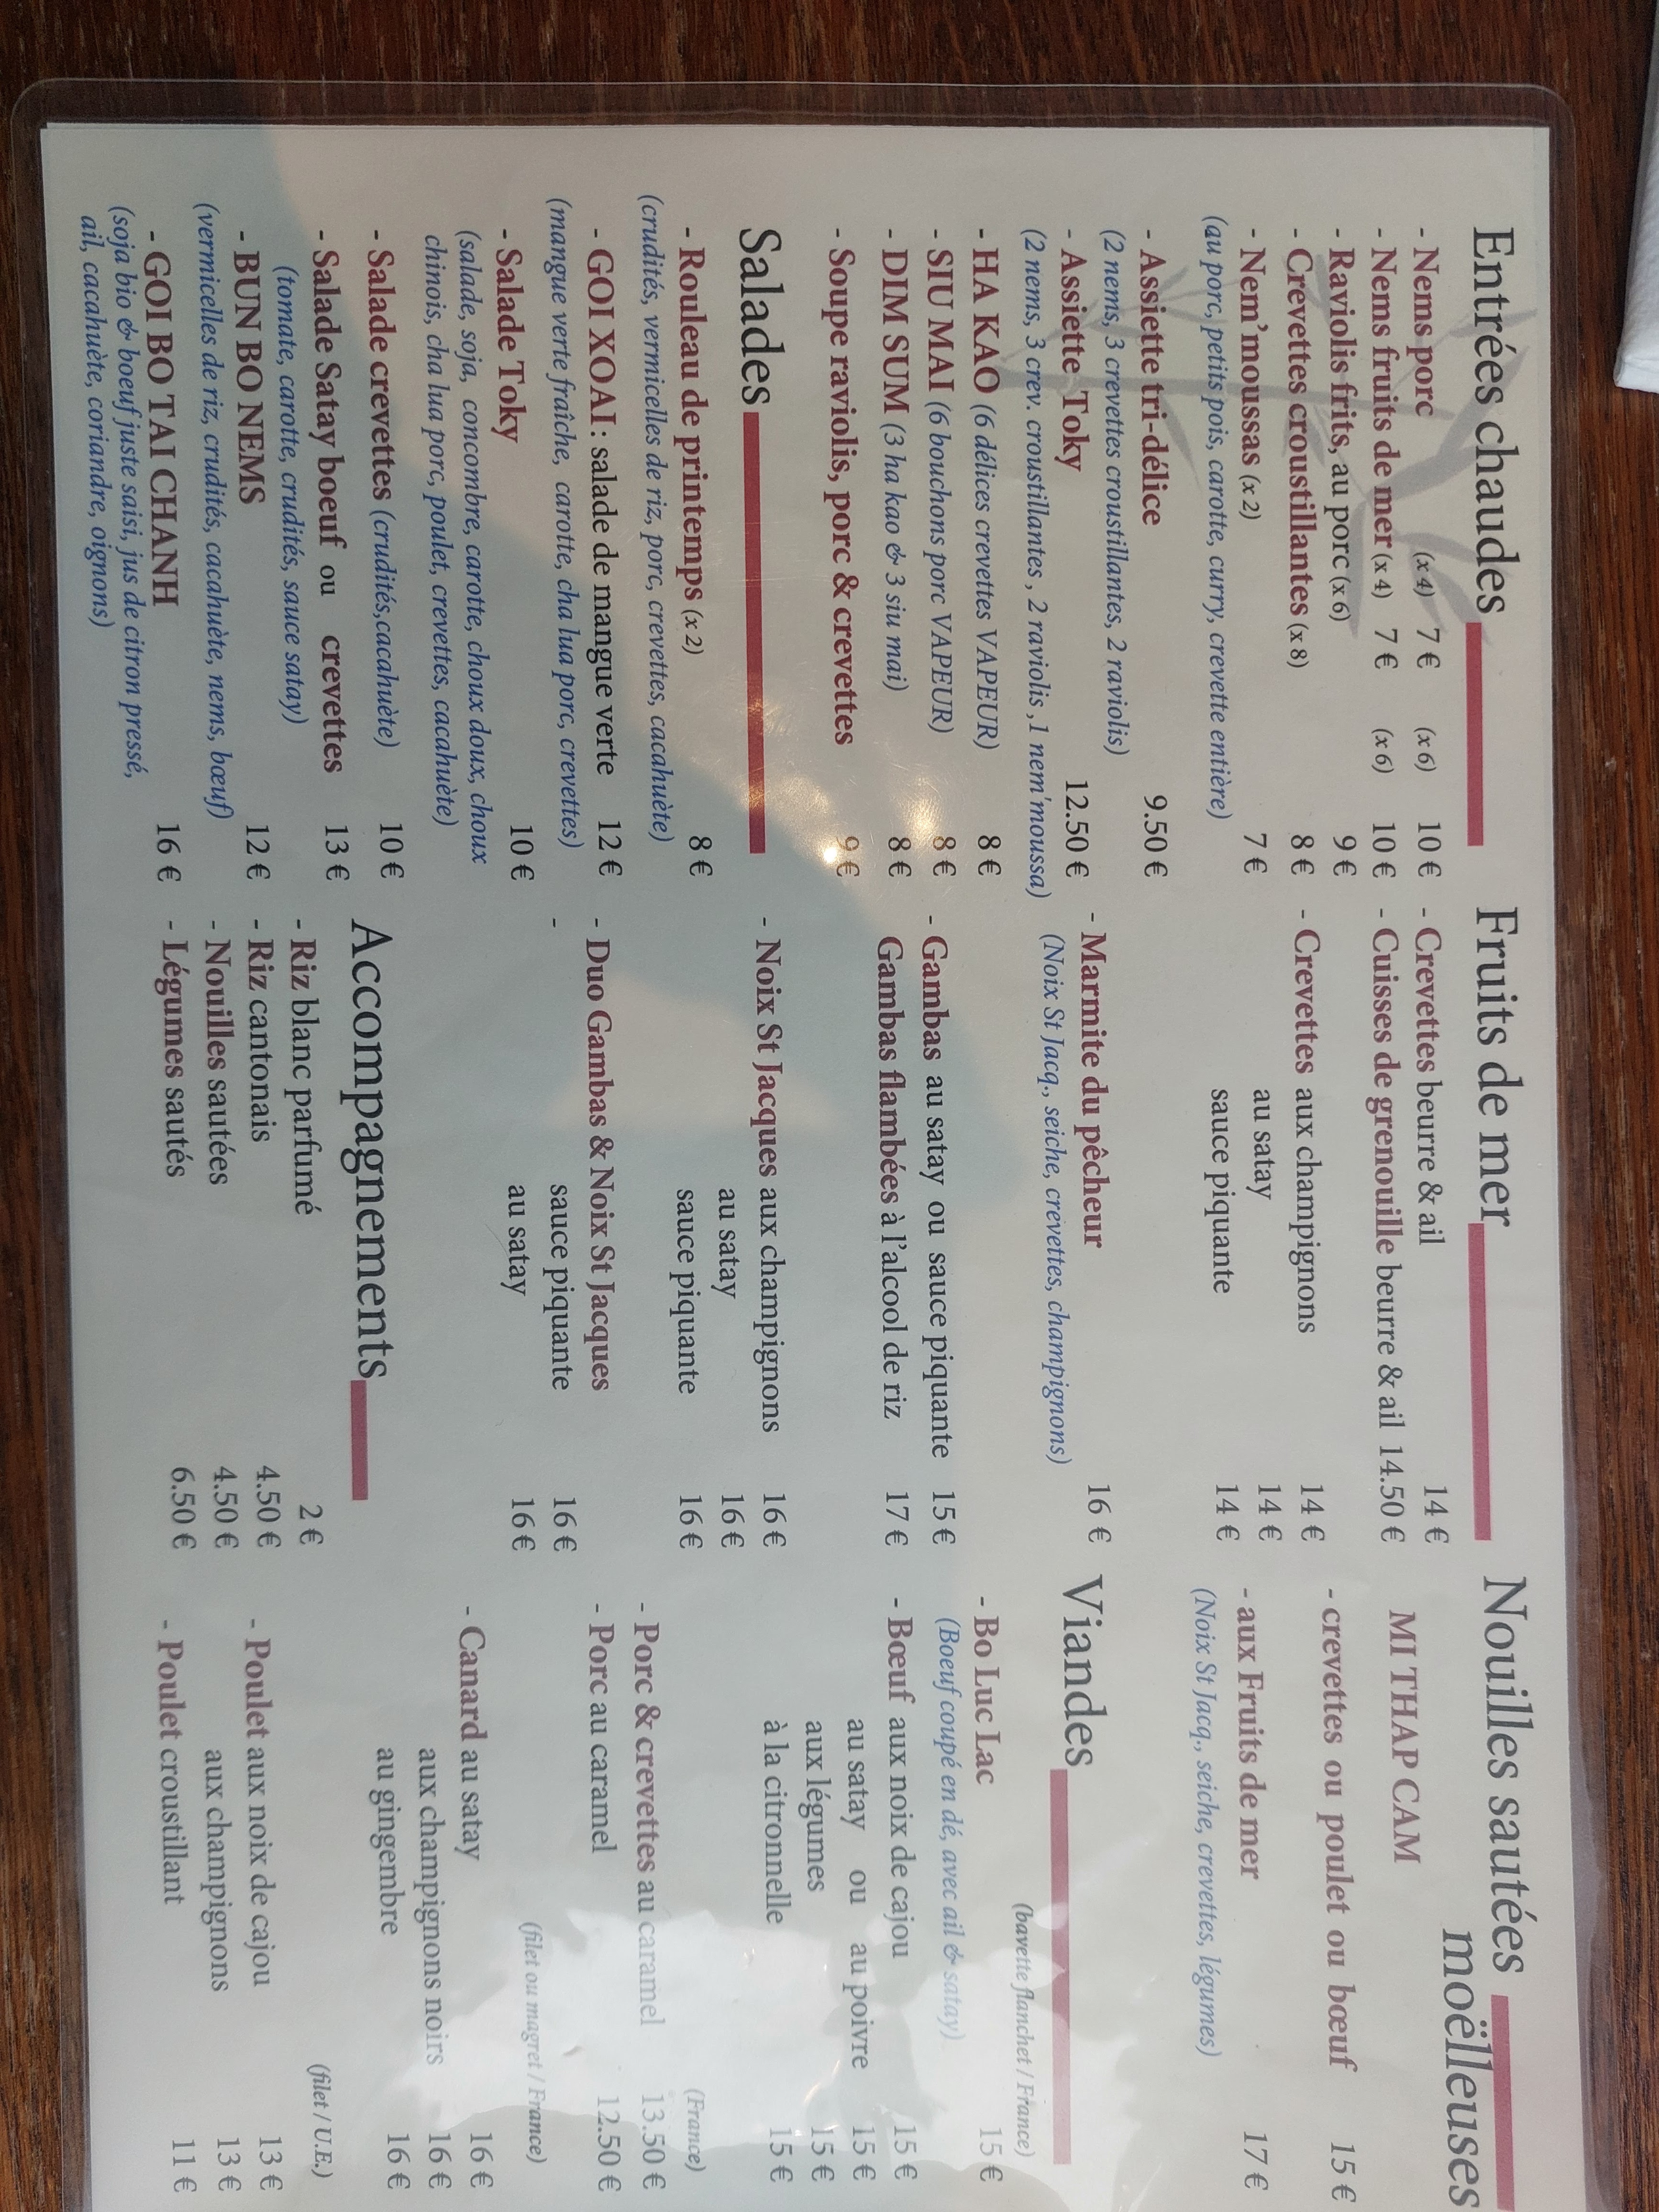 Entrées chaudes
- Nems porc (x 4) 7 € (x 6) 10 €
- Nems fruits de mer (x 4) 7 € (x 6) 10 €
- Raviolis frits, au porc (x 6) 9 €
- Crevettes croustillantes (x 8) 8 €
- Nem'moussas (x 2) 7 €
(au porc, petits pois, carotte, curry, crevette entière)
- Assiette tri-délice 9.50 €
(2 nems, 3 crevettes croustillantes, 2 raviolis)
- Assiette Toky 12.50 €
(2 nems, 3 crev. croustillantes , 2 raviolis ,1 nem'moussa)
- HA KAO (6 délices crevettes VAPEUR) 8 €
- SIU MAI (6 bouchons porc VAPEUR) 8 €
- DIM SUM (3 ha kao & 3 siu mai) 8 €
- Soupe raviolis, porc & crevettes 9 €
Salades
- Rouleau de printemps (x 2) 8 €
(crudités, vermicelles de riz, porc, crevettes, cacahuète)
- GOI XOAI : salade de mangue verte 12 €
(mangue verte fraîche, carotte, cha lua porc, crevettes)
- Salade Toky 10 €
(salade, soja, concombre, carotte, choux doux, choux
chinois, cha lua porc, poulet, crevettes, cacahuète)
- Salade crevettes (crudités,cacahuète) 10 €
- Salade Satay boeuf ou crevettes 13 €
(tomate, carotte, crudités, sauce satay)
- BUN BO NEMS 12 €
(vermicelles de riz, crudités, cacahuète, nems, bœuf)
- GOI BO TAI CHANH 16 €
(soja bio & boeuf juste saisi, jus de citron pressé,
ail, cacahuète, coriandre, oignons)
Fruits de mer
- Crevettes beurre & ail 14 €
- Cuisses de grenouille beurre & ail 14.50 €
- Crevettes aux champignons 14 €
au satay 14 €
sauce piquante 14 €
- Marmite du pêcheur 16 €
(Noix St Jacq., seiche, crevettes, champignons)
- Gambas au satay ou sauce piquante 15 €
Gambas flambées à l'alcool de riz 17 €
- Noix St Jacques aux champignons 16 €
au satay 16 €
sauce piquante 16 €
- Duo Gambas & Noix St Jacques
- sauce piquante 16 €
au satay 16 €
Accompagnements
- Riz blanc parfumé 2 €
- Riz cantonais 4.50 €
- Nouilles sautées 4.50 €
- Légumes sautés 6.50 €
Nouilles sautées
moëlleuses
MI THAP CAM
- crevettes ou poulet ou bœuf 15 €
- aux Fruits de mer 17 €
(Noix St Jacq., seiche, crevettes, légumes)
Viandes
(bavette flanchet / France)
- Bo Luc Lac 15 €
(Boeuf coupé en dé, avec ail & satay)
- Bœuf aux noix de cajou 15 €
au satay ou au poivre 15 €
aux légumes 15 €
à la citronnelle 15 €
(France)
- Porc & crevettes au caramel 13.50 €
- Porc au caramel 12.50 €
(filet ou magret / France)
- Canard au satay 16 €
aux champignons noirs 16 €
au gingembre 16 €
(filet / U.E.)
- Poulet aux noix de cajou 13 €
aux champignons 13 €
- Poulet croustillant 11 €